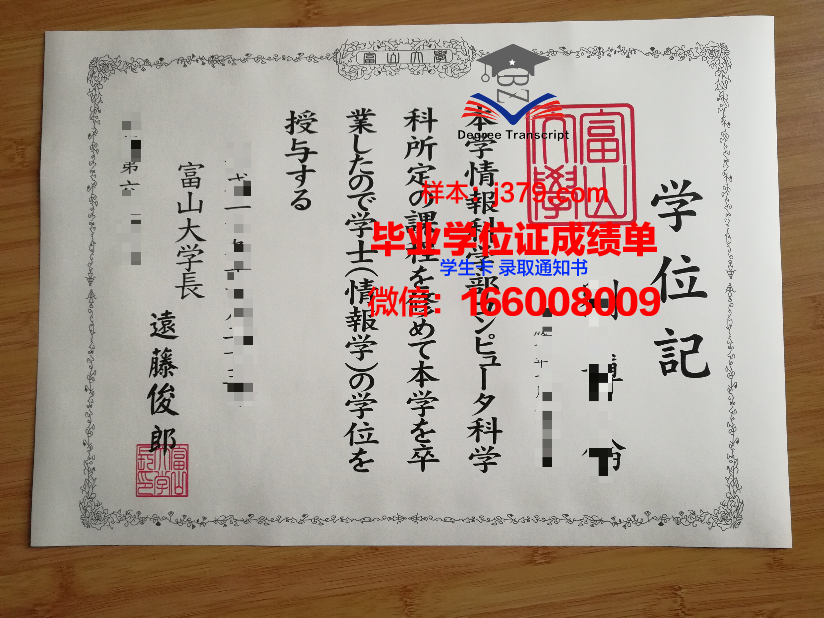 富山大學
Degree Transcript
富山大學
学位記
本学情報科学部コンピュータ科学
科所定の課程を修めて本学を卒
業したので学士(情報学)の学位を
授与する
富山大学長
遠藤俊郎
第六
样本:j379.com
毕业学位证成绩单
学生卡 录取通知书
微信:166008009